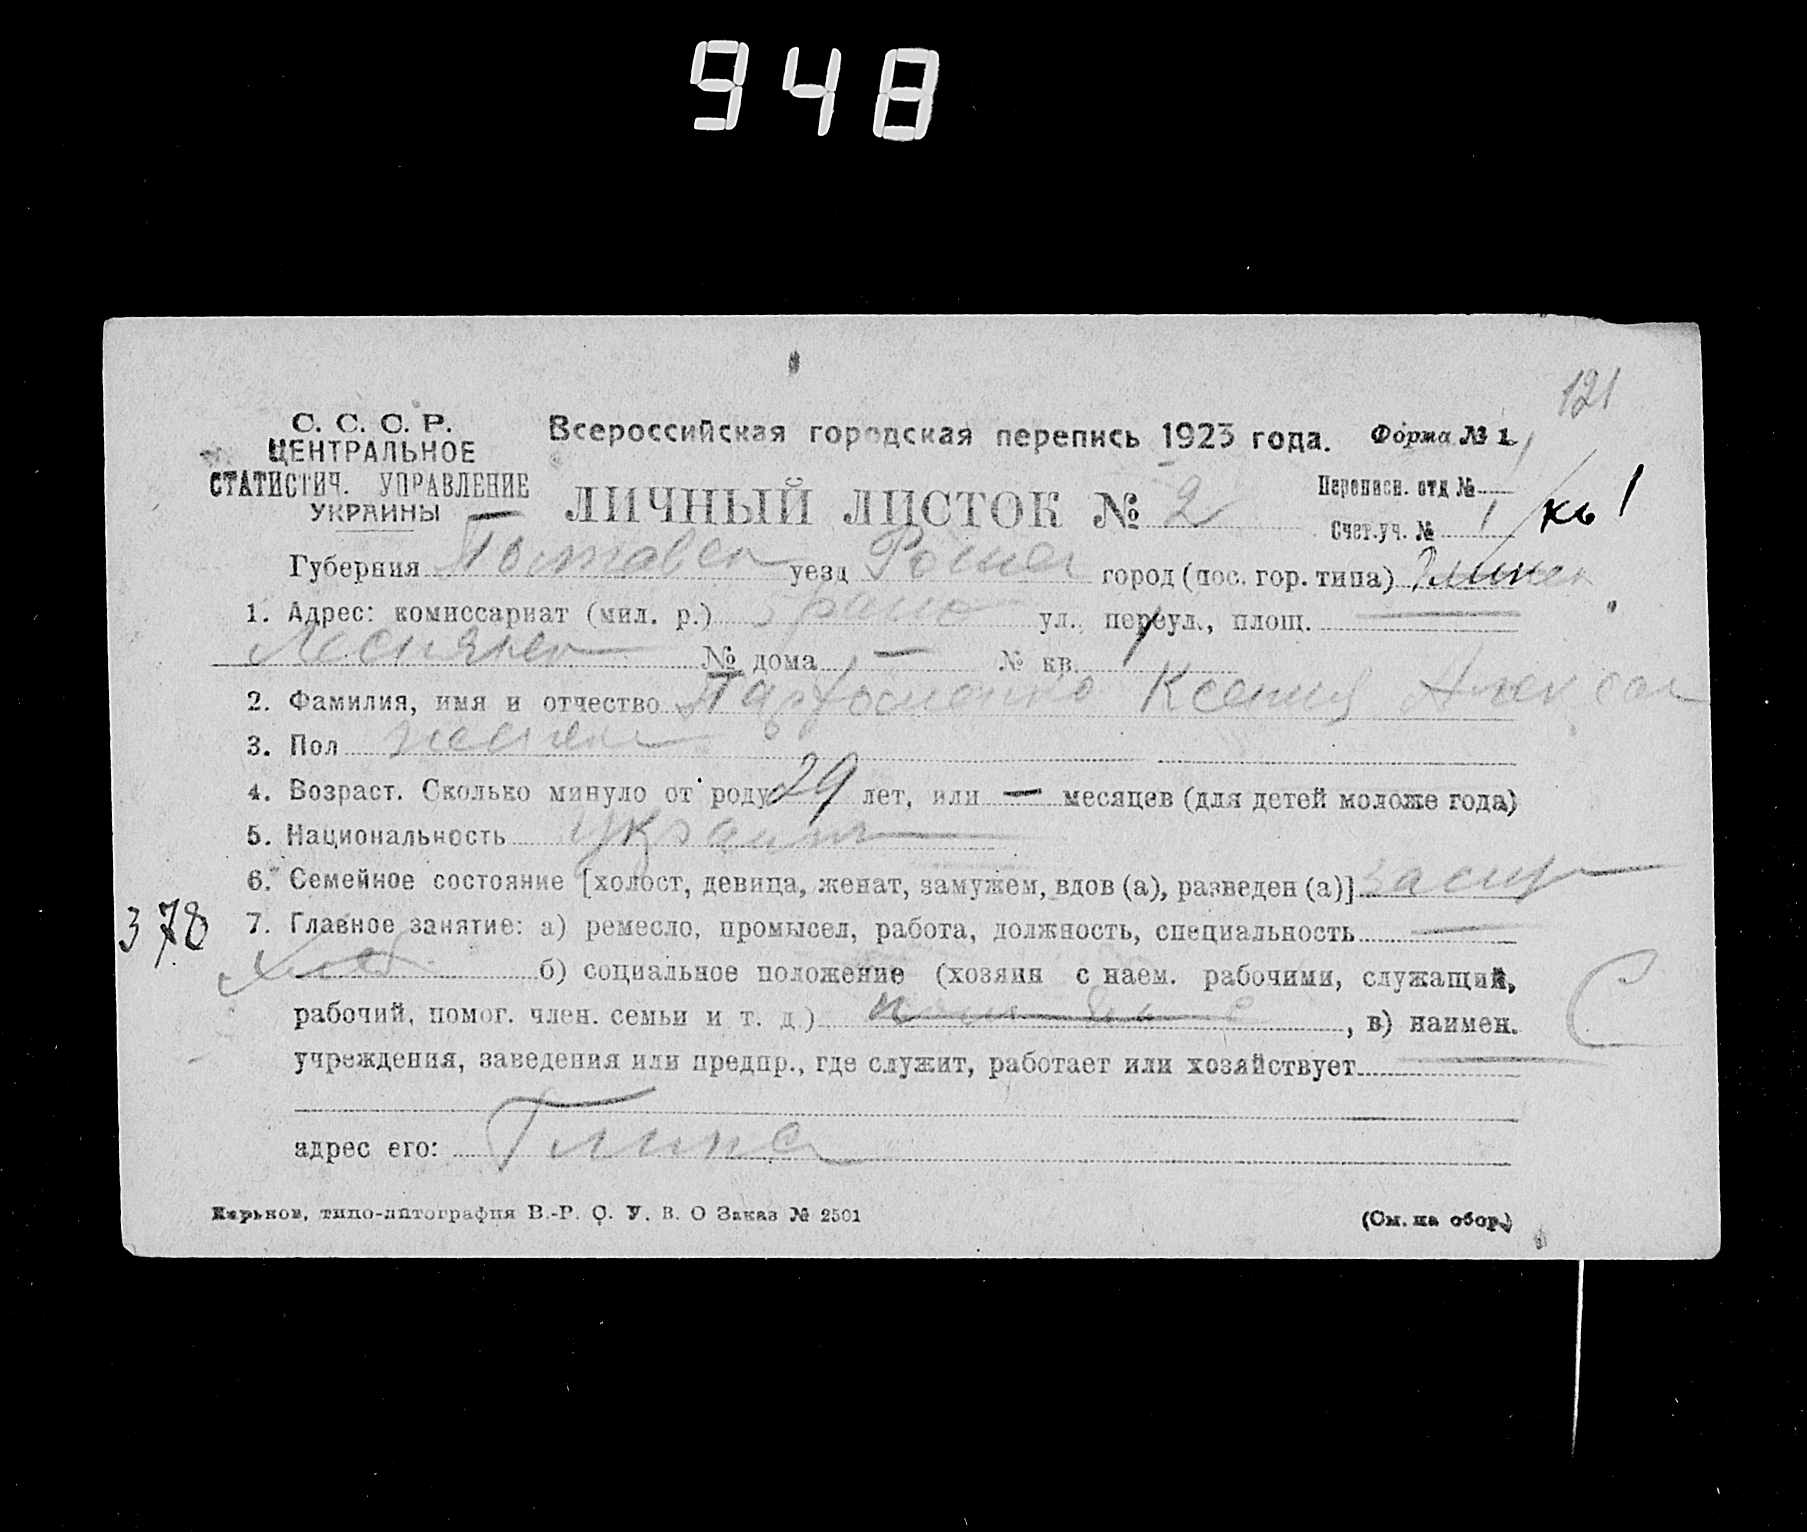 948
121
С. С. С. Р.
ЦЕНТРАЛЬНОЕ
СТАТИСТИЧ. УПРАВЛЕНИЕ
УКРАИНЫ
Всероссийская городская перепись 1923 года.
Форма № 1
ЛИЧНЫЙ ЛИСТОК № 2
Переписн. отд №
Счет.уч. № 1
кв 1
Губерния Полтавск уезд Ромен город (пос. гор. типа) Глинск
1. Адрес: комиссариат (мил. р.) ул., переул., площ.
№ дома — № кв. 1
2. Фамилия, имя и отчество Пархоменко Ксения Алексан
3. Пол женск
4. Возраст. Сколько минуло от роду 29 лет, или — месяцев (для детей моложе года)
5. Национальность украин
6. Семейное состояние [холост, девица, женат, замужем, вдов (а), разведен (а)] замуж
378
7. Главное занятие: а) ремесло, промысел, работа, должность, специальность —
хлеб б) социальное положение (хозяин с наем. рабочими, служащий,
рабочий, помог. член. семьи и т. д.) , в) наимен.
С
учреждения, заведения или предпр., где служит, работает или хозяйствует —
адрес его: Глинск
Харьков, типо-литография В.-Р. С. У. В. О Заказ № 2501
(См. на обор.)